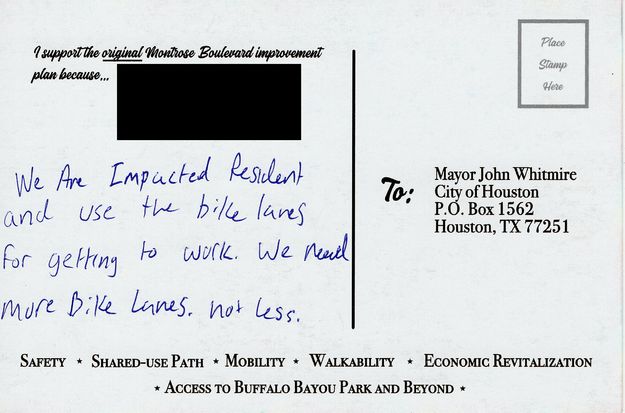 I support the original Montrose Boulevard improvement
plan because...
We Are Impacted Resident
and use the bike lanes
for getting to work. We need
more Bike Lanes. not less.
Place
Stamp
Here
To:
Mayor John Whitmire
City of Houston
P.O. Box 1562
Houston, TX 77251
SAFETY ⋆ SHARED-USE PATH ⋆ MOBILITY ⋆ WALKABILITY ⋆ ECONOMIC REVITALIZATION
⋆ ACCESS TO BUFFALO BAYOU PARK AND BEYOND ⋆